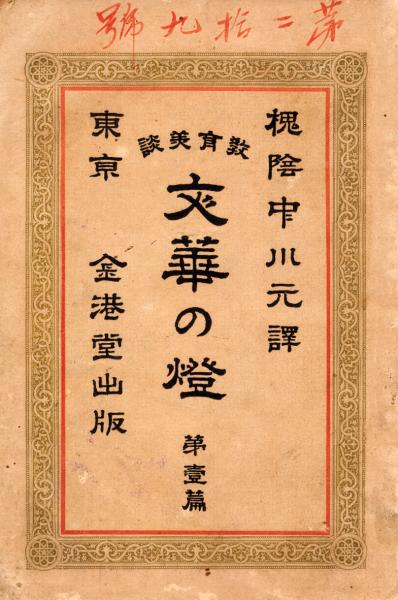 號九拾二第
槐陰中川元譯
談美育教
文華の燈
第壹篇
東京 金港堂出版